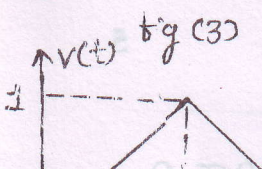 fig (3)
v(t)
1